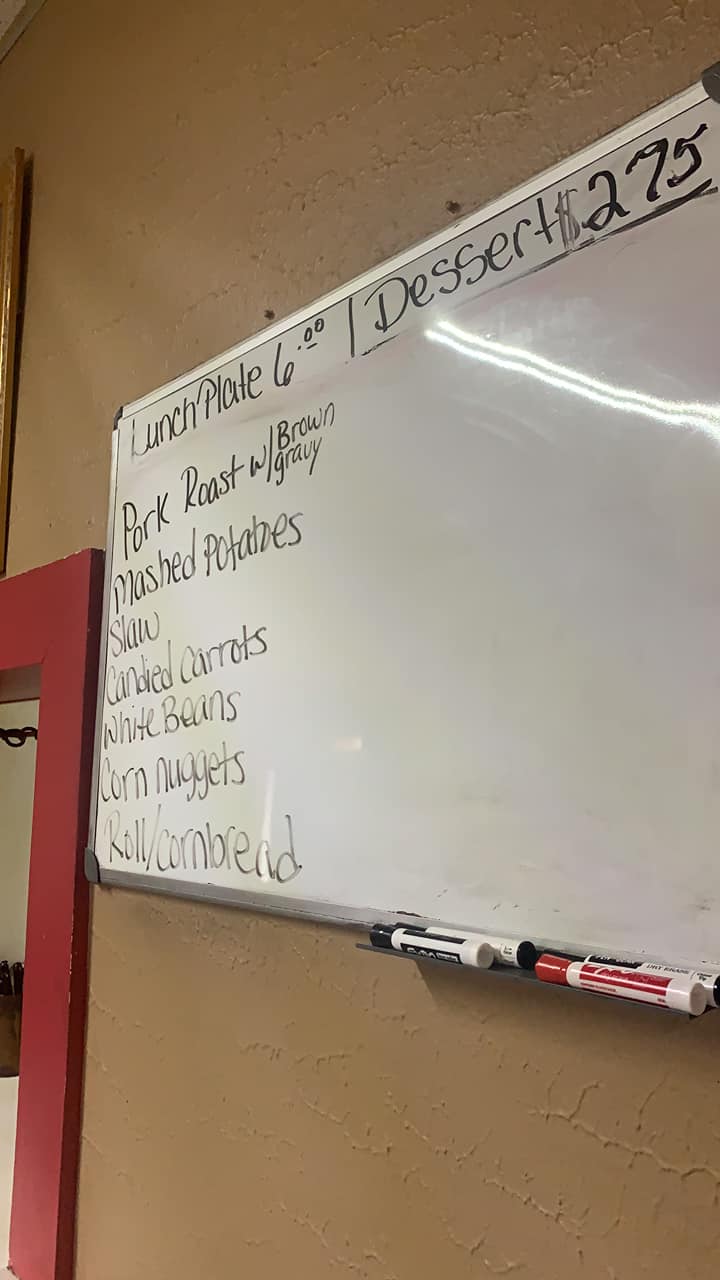 Lunch Plate 6.00 | Dessert $2.75
Pork Roast w/ Brown gravy
Mashed Potatoes
Slaw
Candied Carrots
White Beans
Corn nuggets
Roll/cornbread
DRY ERASE